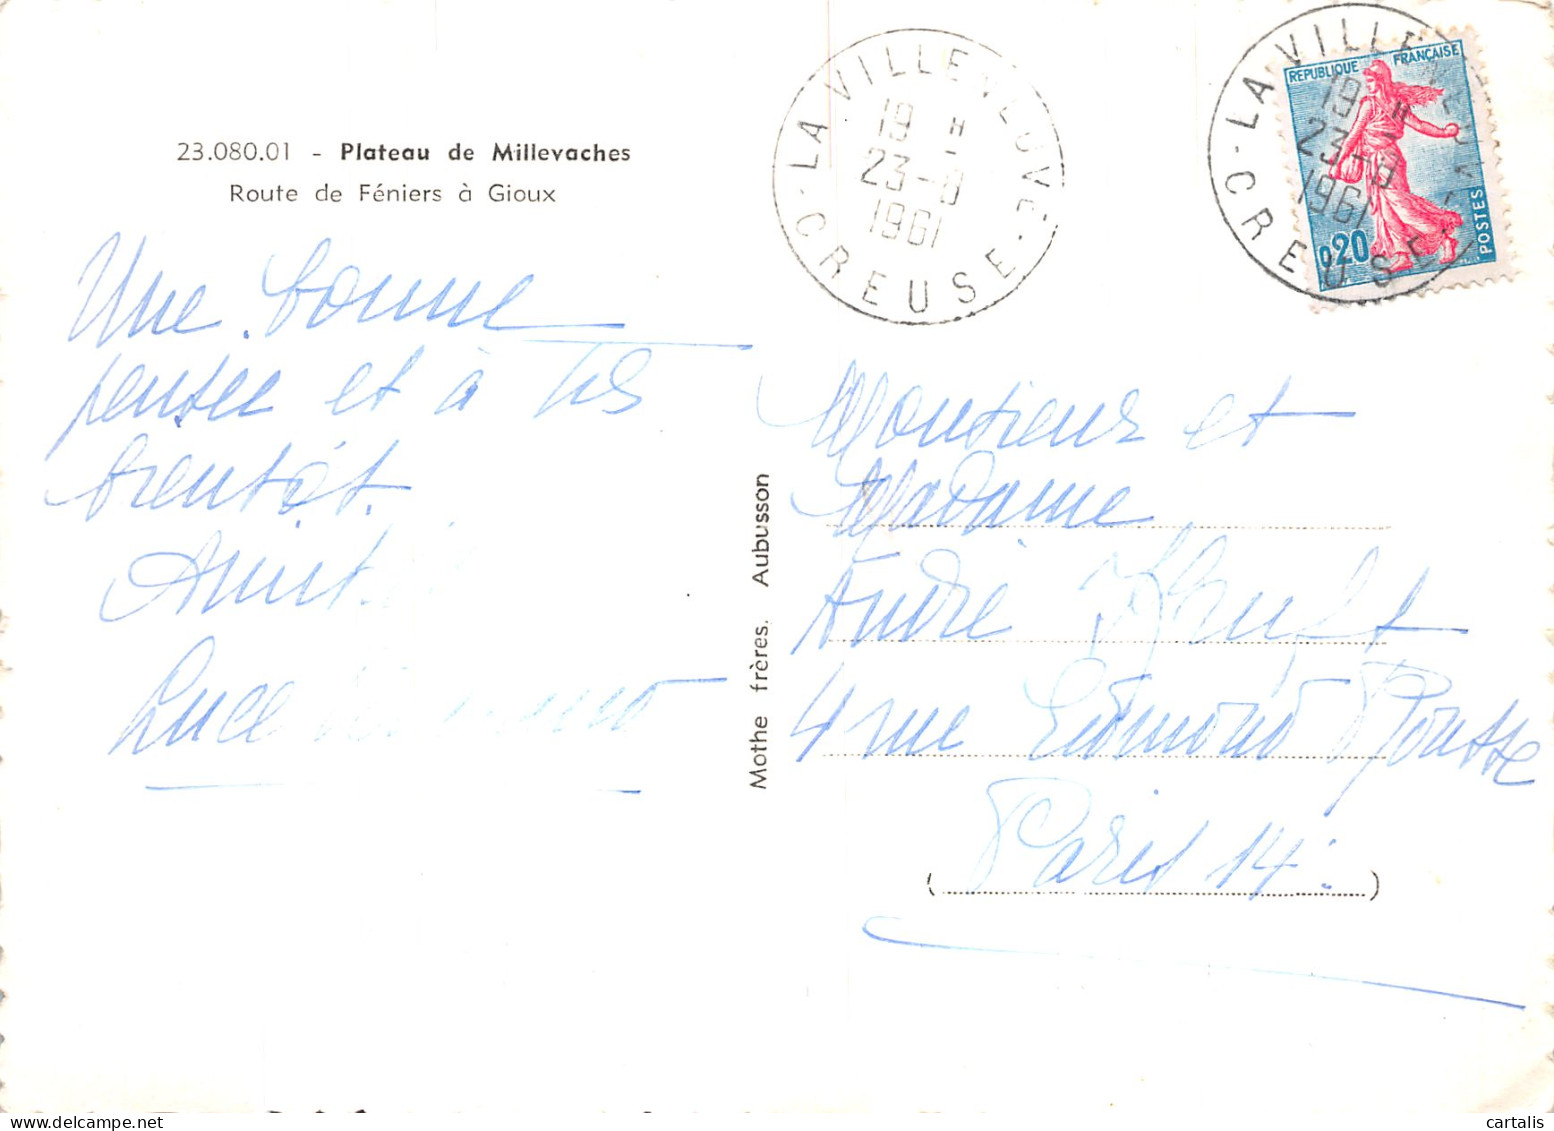 23.080.01 - Plateau de Millevaches
Route de Féniers à Gioux
Une bonne
pensée et à très
bientôt.
Luce
Mothe frères. Aubusson
LA VILLENEUVE
19 H
23-8
1961
CREUSE
LA VILLENEUVE
19 H
23-8
1961
CREUSE
REPUBLIQUE FRANÇAISE
0,20
POSTES
Monsieur et
Madame
André
4 rue Edmond Rousse
Paris 14.
cartalis